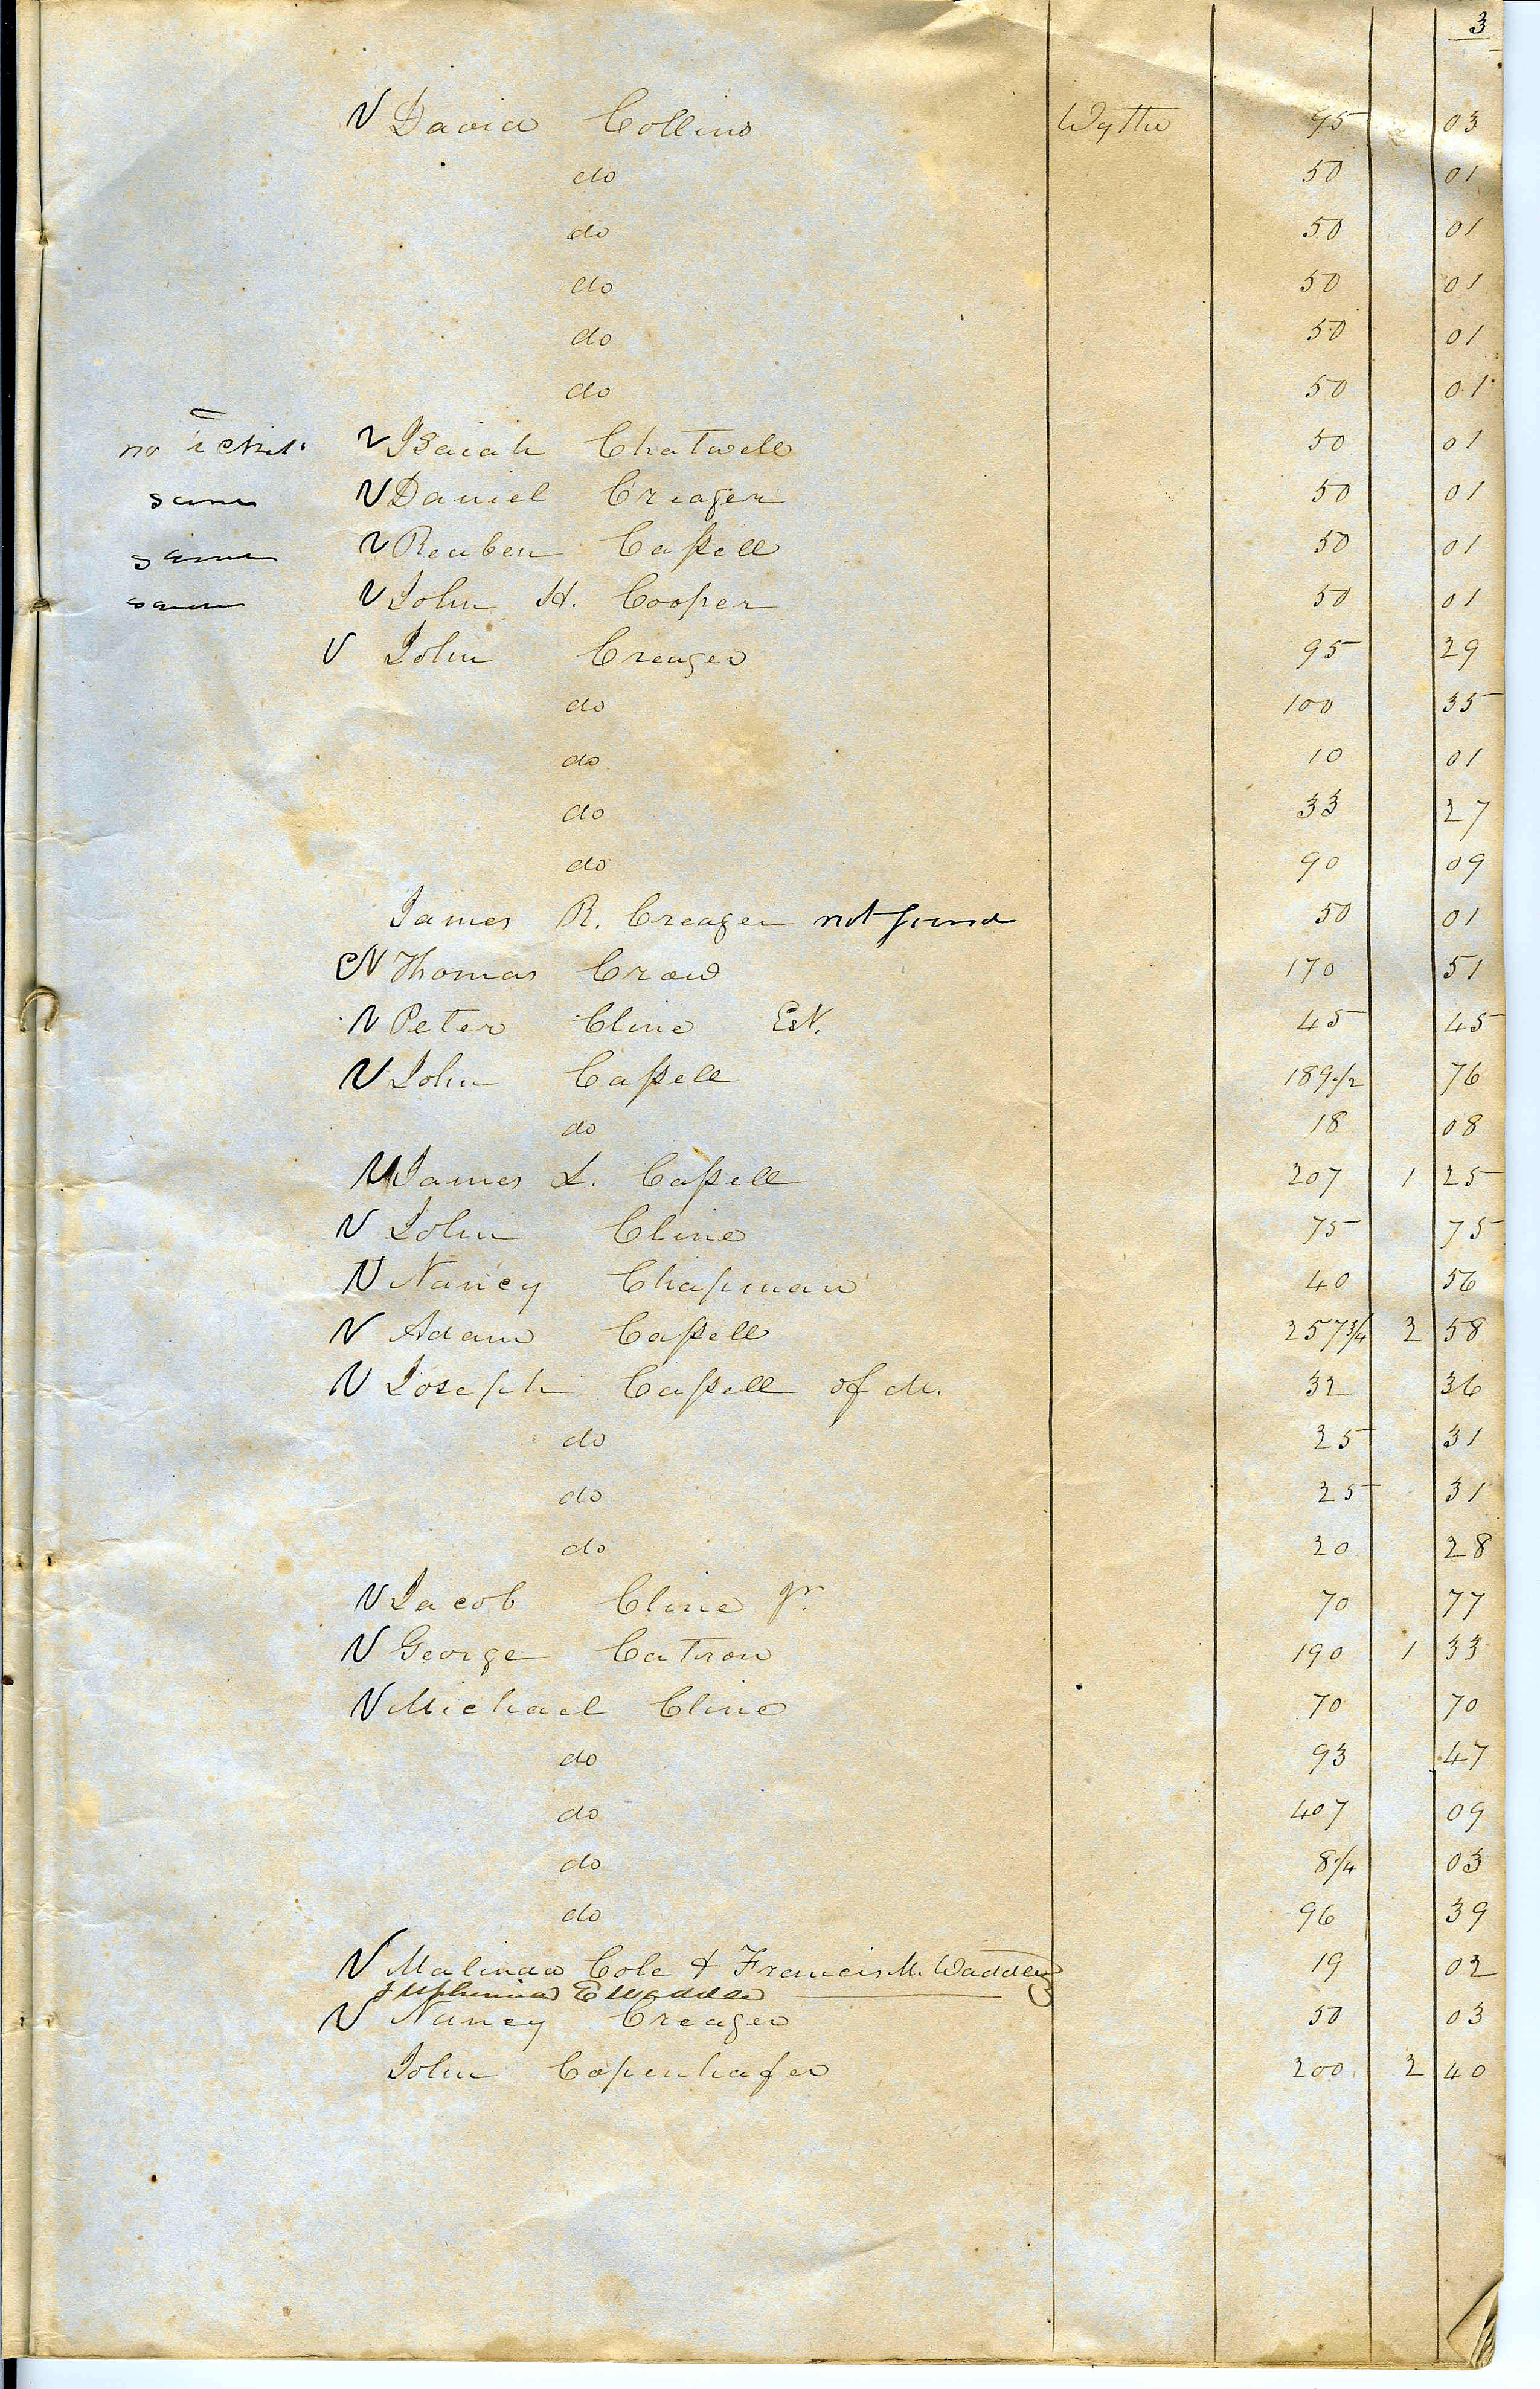 3
√ David Collins Wythe 95 03
do 50 01
do 50 01
do 50 01
do 50 01
do 50 01
no √ Isaiah Chatwell 50 01
same √ Daniel Creager 50 01
same √ Reuben Caſsell 50 01
same √ John H. Cooper 50 01
√ John Creager 95 29
do 100 35
do 10 01
do 33 27
do 90 09
James R. Creager not found 50 01
√ Thomas Crow 170 51
√ Peter Cline Est. 45 45
√ John Caſsell 189 1/2 76
do 18 08
√ James L. Caſsell 207 1 25
√ John Cline 75 75
√ Nancy Chapman 40 56
√ Adam Caſsell 257 3/4 2 58
√ Joseph Caſsell of M. 32 36
do 25 31
do 25 31
do 20 28
√ Jacob Cline Jr. 70 77
√ George Catron 190 1 33
√ Michael Cline 70 70
do 93 47
do 407 09
do 8 1/4 03
do 96 39
√ Malinda Cole & Francis M. Wadden 19 02
& E Wadden
√ Nancy Creager 50 03
John Copenhafer 200 2 40